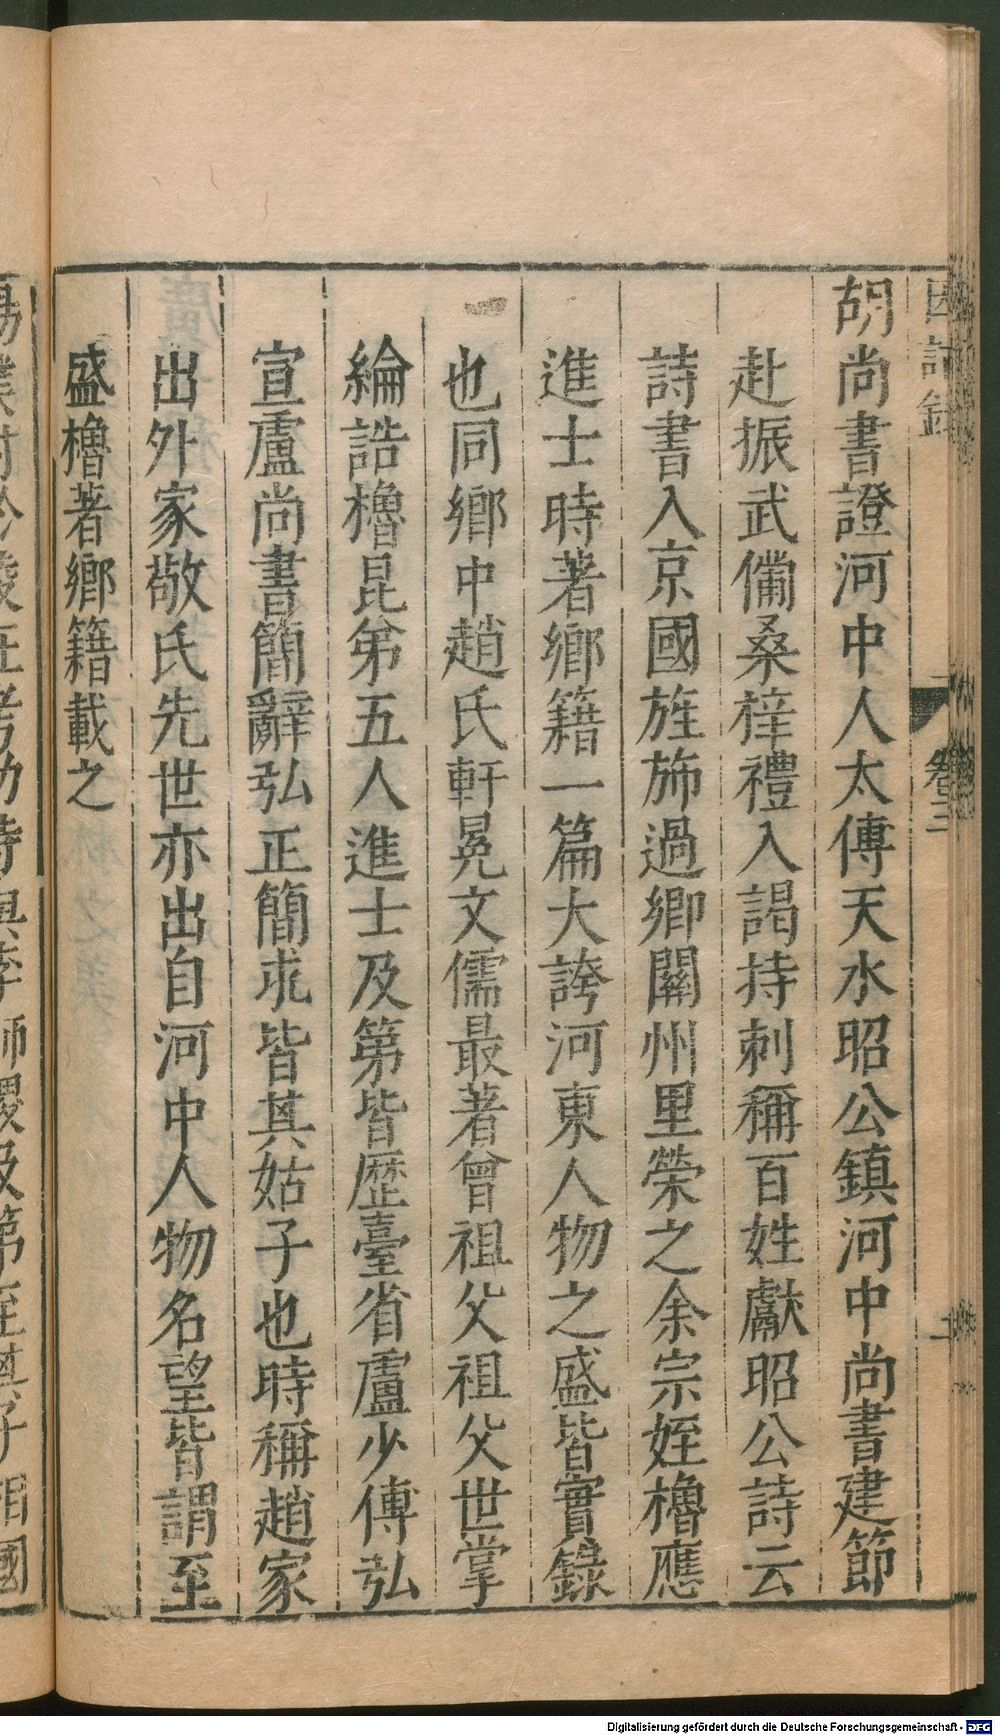 因話錄
卷三
二
胡尚書證河中人太傅天水昭公鎮河中尚書建節
赴振武備桑梓禮入謁持刺稱百姓獻昭公詩云
詩書入京國旌斾過鄉關州里榮之余宗姪櫓應
進士時著鄉籍一篇大誇河東人物之盛皆實錄
也同鄉中趙氏軒冕文儒最著曾祖父祖父世掌
綸誥櫓昆弟五人進士及第皆歷臺省盧少傅弘
宣盧尚書簡辭弘正簡求皆其姑子也時稱趙家
出外家敬氏先世亦出自河中人物名望皆謂至
盛櫓著鄉籍載之
Digitalisierung gefördert durch die Deutsche Forschungsgemeinschaft - DFG